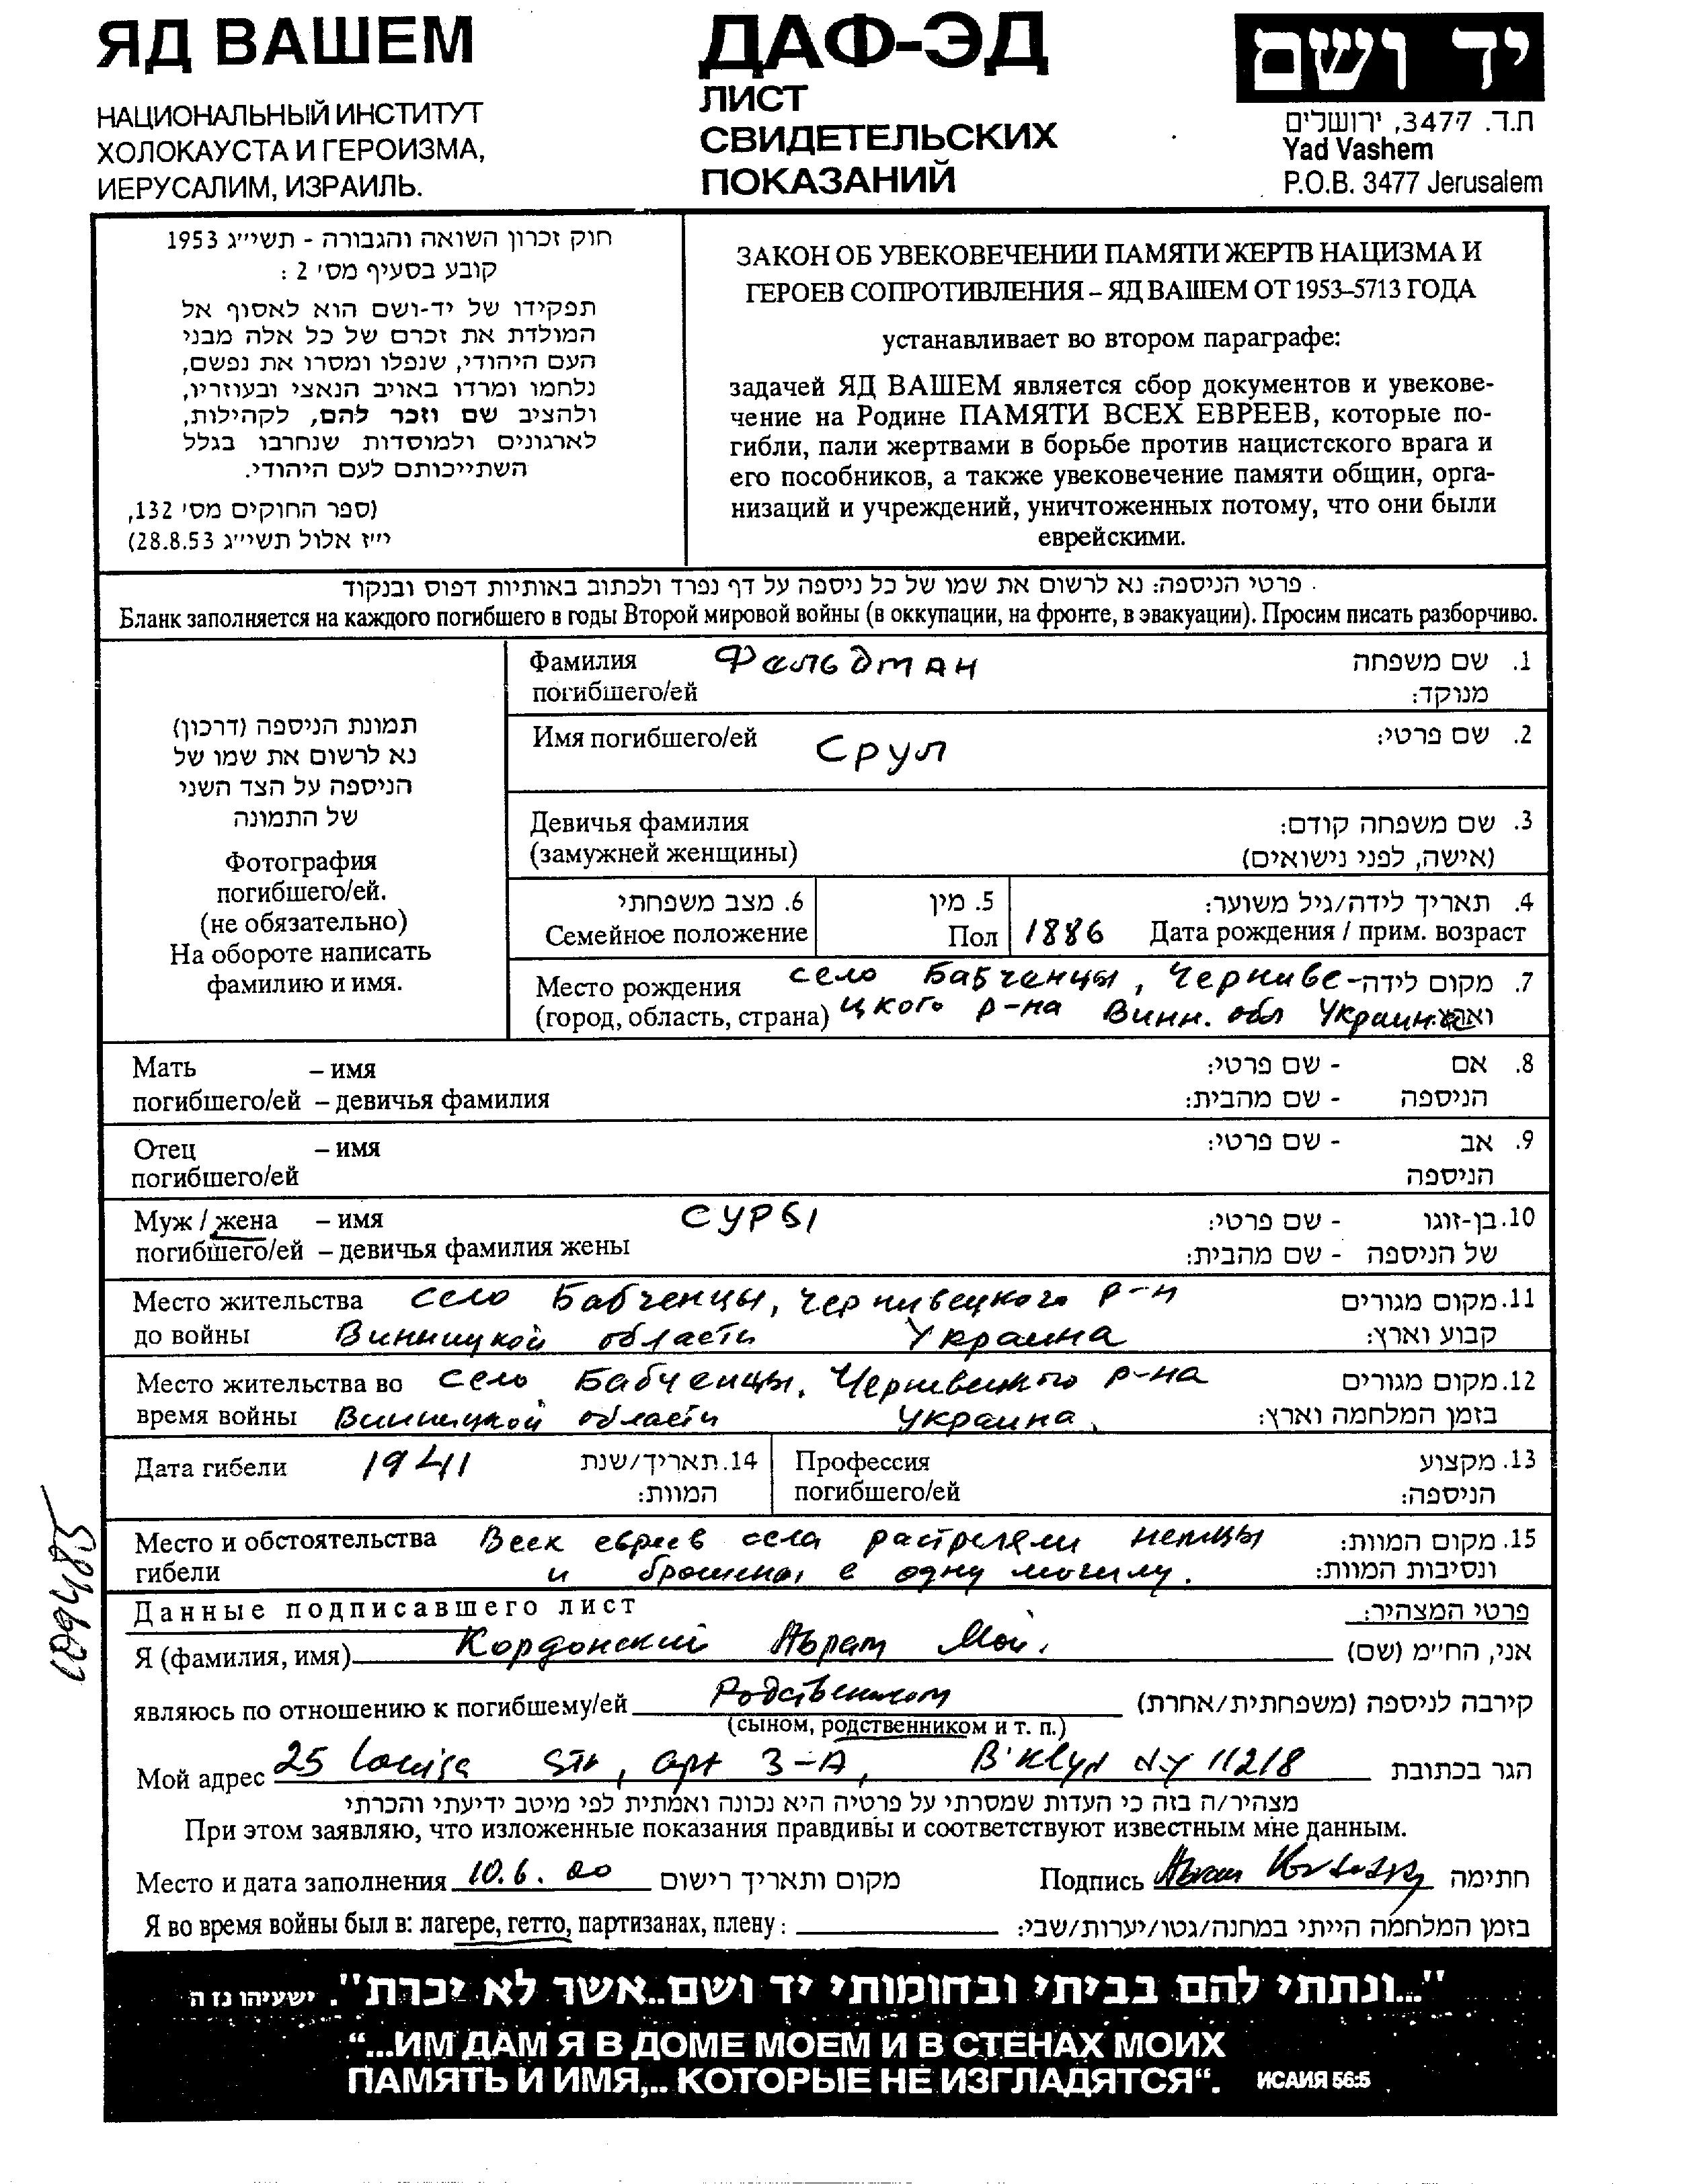 ЯД ВАШЕМ
НАЦИОНАЛЬНЫЙ ИНСТИТУТ
ХОЛОКАУСТА И ГЕРОИЗМА,
ИЕРУСАЛИМ, ИЗРАИЛЬ.
ДАФ-ЭД
ЛИСТ
СВИДЕТЕЛЬСКИХ
ПОКАЗАНИЙ
יד ושם
ת.ד. 3477, ירושלים
Yad Vashem
P.O.B. 3477 Jerusalem
חוק זכרון השואה והגבורה - תשי״ג 1953
קובע בסעיף מס׳ 2 :
תפקידו של יד-ושם הוא לאסוף אל
המולדת את זכרם של כל אלה מבני
העם היהודי, שנפלו ומסרו את נפשם,
נלחמו ומרדו באויב הנאצי ובעוזריו,
ולהציב שם וזכר להם, לקהילות,
לארגונים ולמוסדות שנחרבו בגלל
השתייכותם לעם היהודי.
(ספר החוקים מס׳ 132,
י״ז אלול תשי״ג 28.8.53)
ЗАКОН ОБ УВЕКОВЕЧЕНИИ ПАМЯТИ ЖЕРТВ НАЦИЗМА И
ГЕРОЕВ СОПРОТИВЛЕНИЯ – ЯД ВАШЕМ ОТ 1953–5713 ГОДА
устанавливает во втором параграфе:
задачей ЯД ВАШЕМ является сбор документов и увекове-
чение на Родине ПАМЯТИ ВСЕХ ЕВРЕЕВ, которые по-
гибли, пали жертвами в борьбе против нацистского врага и
его пособников, а также увековечение памяти общин, орга-
низаций и учреждений, уничтоженных потому, что они были
еврейскими.
פרטי הניספה: נא לרשום את שמו של כל ניספה על דף נפרד ולכתוב באותיות דפוס ובנקוד
Бланк заполняется на каждого погибшего в годы Второй мировой войны (в оккупации, на фронте, в эвакуации). Просим писать разборчиво.
תמונת הניספה (דרכון)
נא לרשום את שמו של
הניספה על הצד השני
של התמונה
Фотография
погибшего/ей.
(не обязательно)
На обороте написать
фамилию и имя.
Фамилия Фельдман 1. שם משפחה
погибшего/ей מנוקד:
Имя погибшего/ей Срул 2. שם פרטי:
Девичья фамилия 3. שם משפחה קודם:
(замужней женщины) (אישה, לפני נישואים)
6. מצב משפחתי 5. מין 4. תאריך לידה/גיל משוער:
Семейное положение Пол 1886 Дата рождения / прим. возраст
Место рождения село Бабченцы, Черниве- 7. מקום לידה
(город, область, страна) цкого р-на Винн. обл Украина וארץ:
Мать – имя 8. אם - שם פרטי:
погибшего/ей – девичья фамилия הניספה - שם מהבית:
Отец – имя 9. אב - שם פרטי:
погибшего/ей הניספה
Муж / жена – имя СУРЫ 10. בן-זוגו - שם פרטי:
погибшего/ей – девичья фамилия жены של הניספה - שם מהבית:
Место жительства село Бабченцы, Чернивецкого р-н 11. מקום מגורים
до войны Винницкой области Украина קבוע וארץ:
Место жительства во село Бабченцы, Чернивецкого р-на 12. מקום מגורים
время войны Винницкой области Украина. בזמן המלחמה וארץ:
Дата гибели 1941 14. תאריך/שנת
המוות:
Профессия 13. מקצוע
погибшего/ей הניספה:
Место и обстоятельства Всех евреев села растреляли немцы 15. מקום המוות:
гибели и брошены в одну могилу. ונסיבות המוות:
Данные подписавшего лист פרטי המצהיר:
Я (фамилия, имя) Кордонский Абрам Мой. אני, החי״מ (שם)
являюсь по отношению к погибшему/ей Родственником קירבה לניספה (משפחתית/אחרת)
(сыном, родственником и т. п.)
Мой адрес 25 Louisa Str, apt 3-A, B'klyn N-Y 11218 הגר בכתובת
מצהיר/ה בזה כי העדות שמסרתי על פרטיה היא נכונה ואמתית לפי מיטב ידיעתי והכרתי
При этом заявляю, что изложенные показания правдивы и соответствуют известным мне данным.
Место и дата заполнения 10.6.00 מקום ותאריך רישום Подпись חתימה
Я во время войны был в: лагере, гетто, партизанах, плену: בזמן המלחמה הייתי במחנה/גטו/יערות/שבי:
"...ונתתי להם בביתי ובחומותי יד ושם..אשר לא יכרת". ישעיהו נז ה
“...ИМ ДАМ Я В ДОМЕ МОЕМ И В СТЕНАХ МОИХ
ПАМЯТЬ И ИМЯ,.. КОТОРЫЕ НЕ ИЗГЛАДЯТСЯ“. ИСАИЯ 56:5